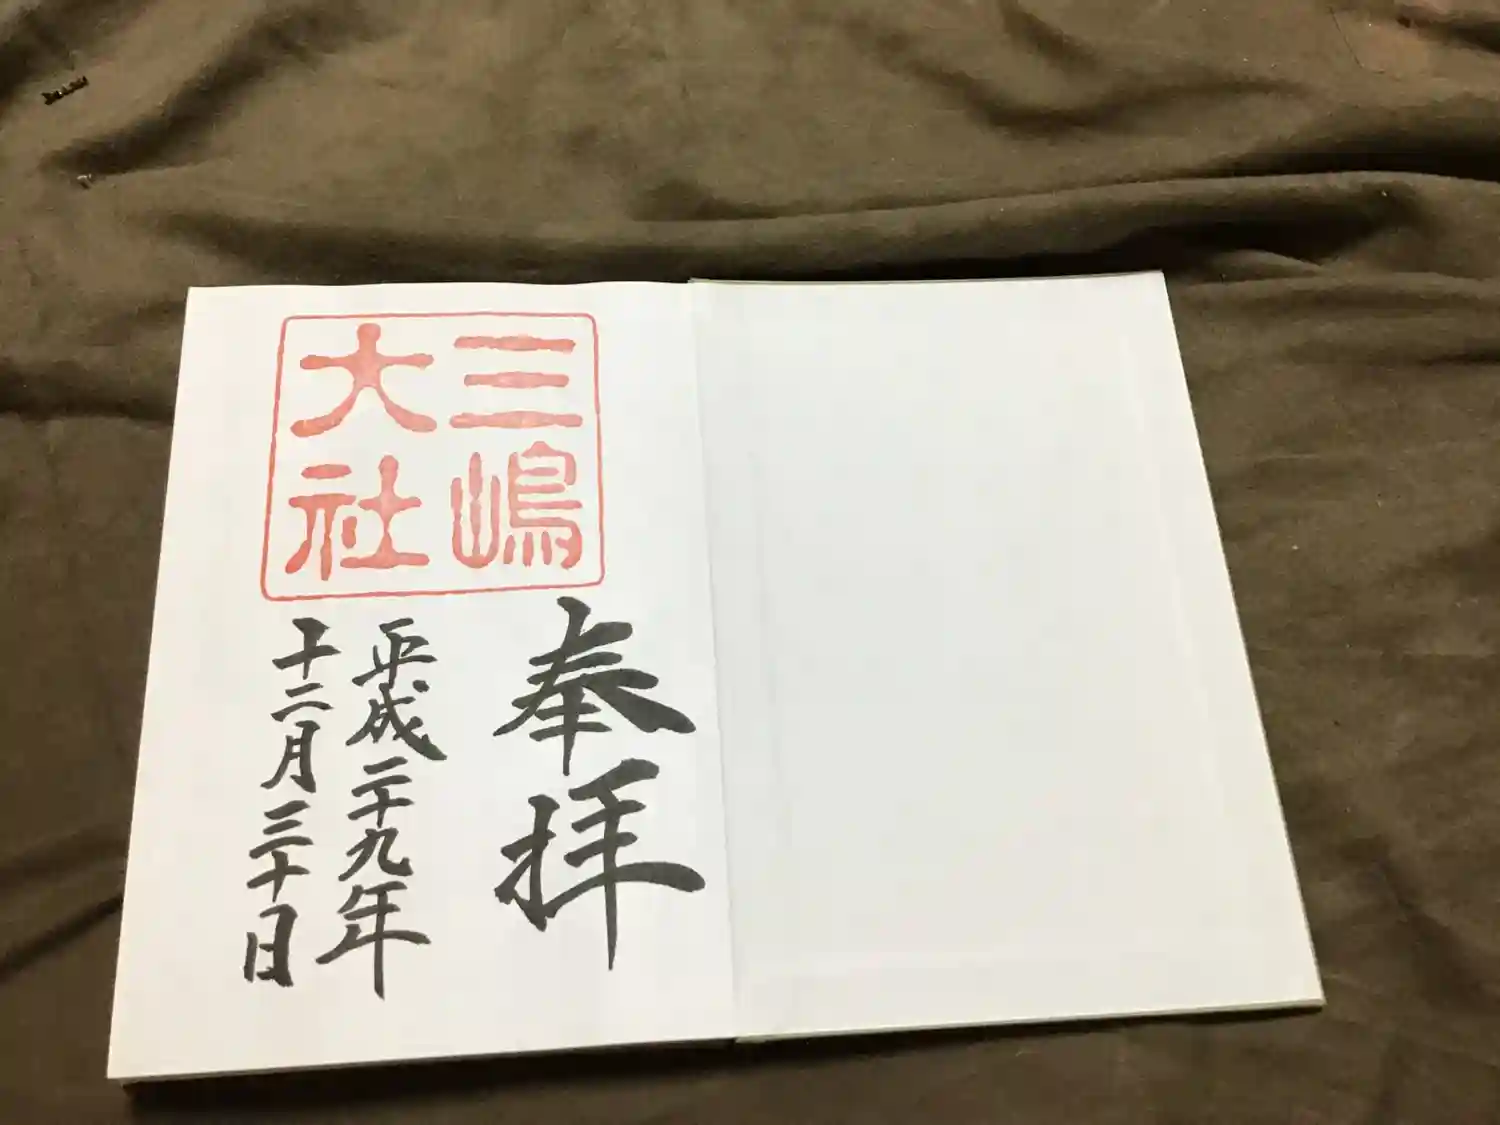 三嶋
大社
奉拝
平成二十九年
十二月三十日